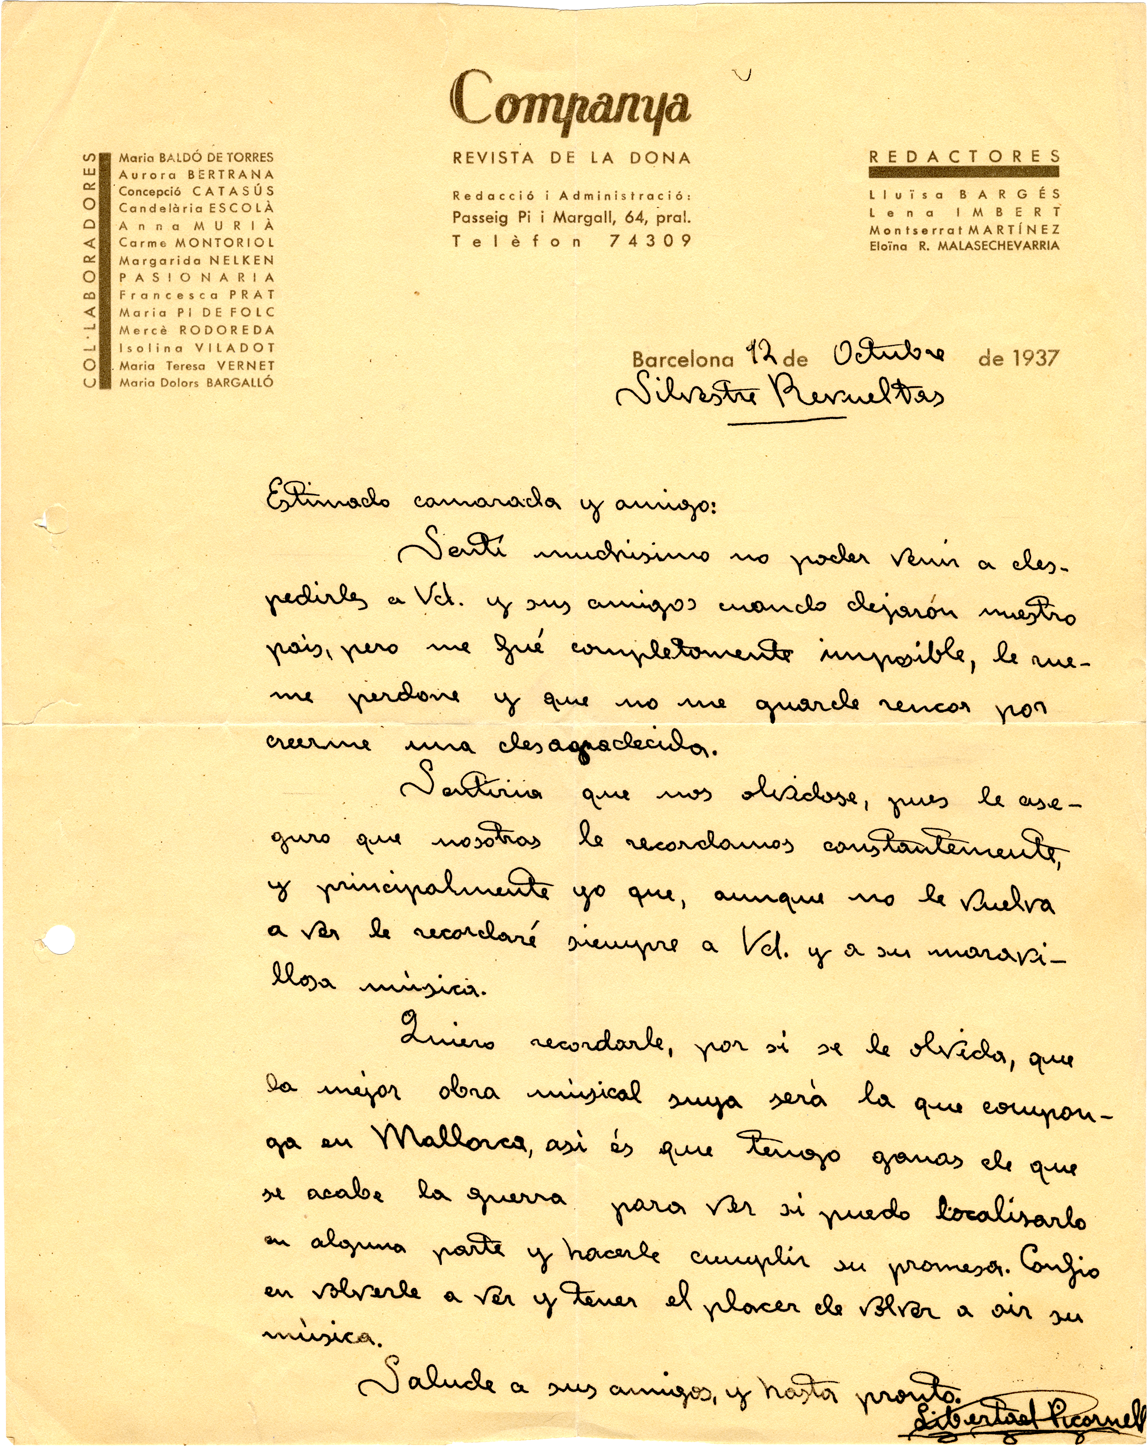 Companya
REVISTA DE LA DONA
Redacció i Administració:
Passeig Pi i Margall, 64, pral.
Telèfon 74309
COL·LABORADORES
Maria BALDÓ DE TORRES
Aurora BERTRANA
Concepció CATASÚS
Candelària ESCOLÀ
Anna MURIÀ
Carme MONTORIOL
Margarida NELKEN
PASIONARIA
Francesca PRAT
Maria PI DE FOLC
Mercè RODOREDA
Isolina VILADOT
Maria Teresa VERNET
Maria Dolors BARGALLÓ
REDACTORES
Lluïsa BARGÉS
Lena IMBERT
Montserrat MARTÍNEZ
Eloïna R. MALASECHEVARRIA
Barcelona 12 de Octubre de 1937
Silvestre Revueltas
Estimado camarada y amigo:
Sentí muchisimo no poder venir a des-
pedirles a Vd. y sus amigos cuando dejarón nuestro
pais, pero me fué completamente imposible, le rue-
me perdone y que no me guarde rencor por
creerme una desagradecida.
Sentiria que nos olvidase, pues le ase-
guro que nosotras le recordamos constantemente,
y principalmente yo que, aunque no le vuelva
a ver le recordaré siempre a Vd. y a su maravi-
llosa mùsica.
Quiero recordarle, por si se le olvida, que
la mejor obra mùsical suya serà la que compon-
ga en Mallorca, asì és que tengo ganas de que
se acabe la guerra para ver si puedo localisarlo
en alguna parte y hacerle cumplir su promesa. Confio
en volverle a ver y tener el placer de volver a oir su
mùsica.
Salude a sus amigos, y hasta pronto.
Libertad Picornell